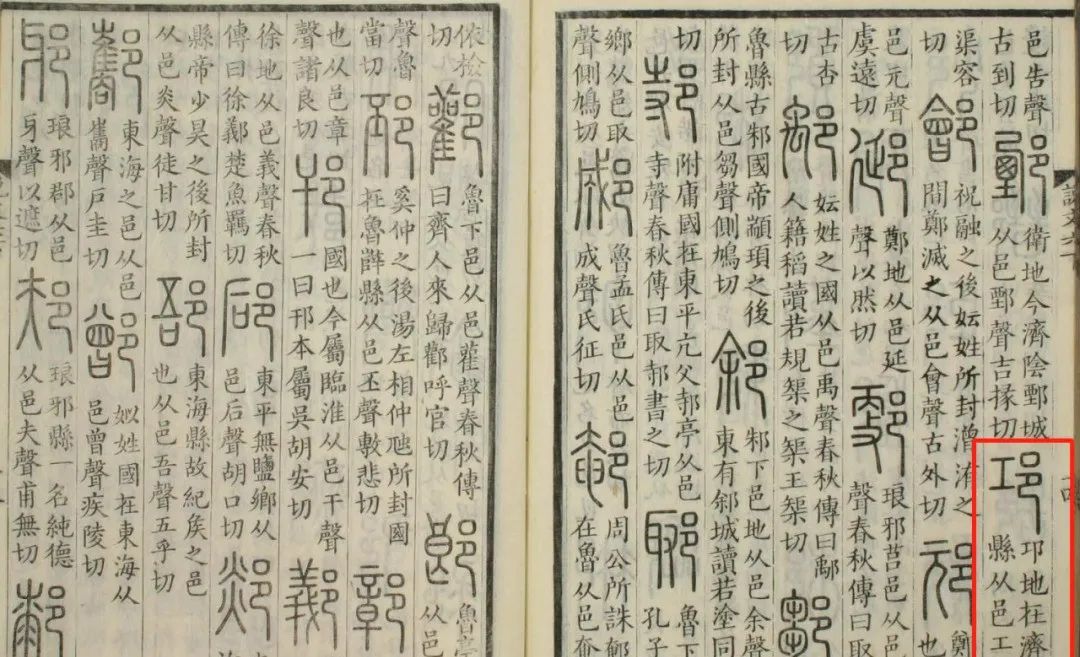 邑告聲
古到切
鄄
衛地今濟陰鄄城
从邑垔聲吉掾切
邛
邛地在濟
縣从邑工
渠容
切
鄶
祝融之後妘姓所封潧洧之
間鄭滅之从邑會聲古外切
邧
鄭
也
邑元聲
虞遠切
郔
鄭地从邑延
聲以然切
郠
琅邪莒邑从
聲春秋傳曰取
古杏
切
鄅
妘姓之國从邑禹聲春秋傳曰鄅
人籍稻讀若規榘之榘王榘切
鄒
魯縣古邾國帝顓頊之後
所封从邑芻聲側鳩切
䣄
邾下邑地从邑余聲
東有䣄城讀若塗同
切
邿
附庸國在東平亢父邿亭从邑
寺聲春秋傳曰取邿書之切
郰
魯下
孔子
鄉从邑取
聲側鳩切
郕
魯孟氏邑从邑
成聲氏征切
周公所誅
在魯从邑奄
依檢
切
酄
魯下邑从邑雚聲春秋傳
曰齊人來歸酄呼官切
郎
魯亭
从邑
聲魯
當切
邳
奚仲之後湯左相仲虺所封國
在魯薛縣从邑丕聲敷悲切
鄣
也从邑章
聲諸良切
邗
國也今屬臨淮从邑干聲
一曰邗本屬吳胡安切
䣡
徐地从邑義聲春秋
傳曰徐䣡楚魚羈切
郈
東平無鹽鄉从
邑后聲胡口切
郯
縣帝少昊之後所封
从邑炎聲徒甘切
郚
東海縣故紀矦之邑
也从邑吾聲五乎切
酅
東海之邑从邑
巂聲戶圭切
鄫
姒姓國在東海从
邑曾聲疾陵切
邪
琅邪郡从邑
牙聲以遮切
邞
琅邪縣一名純德
从邑夫聲甫無切